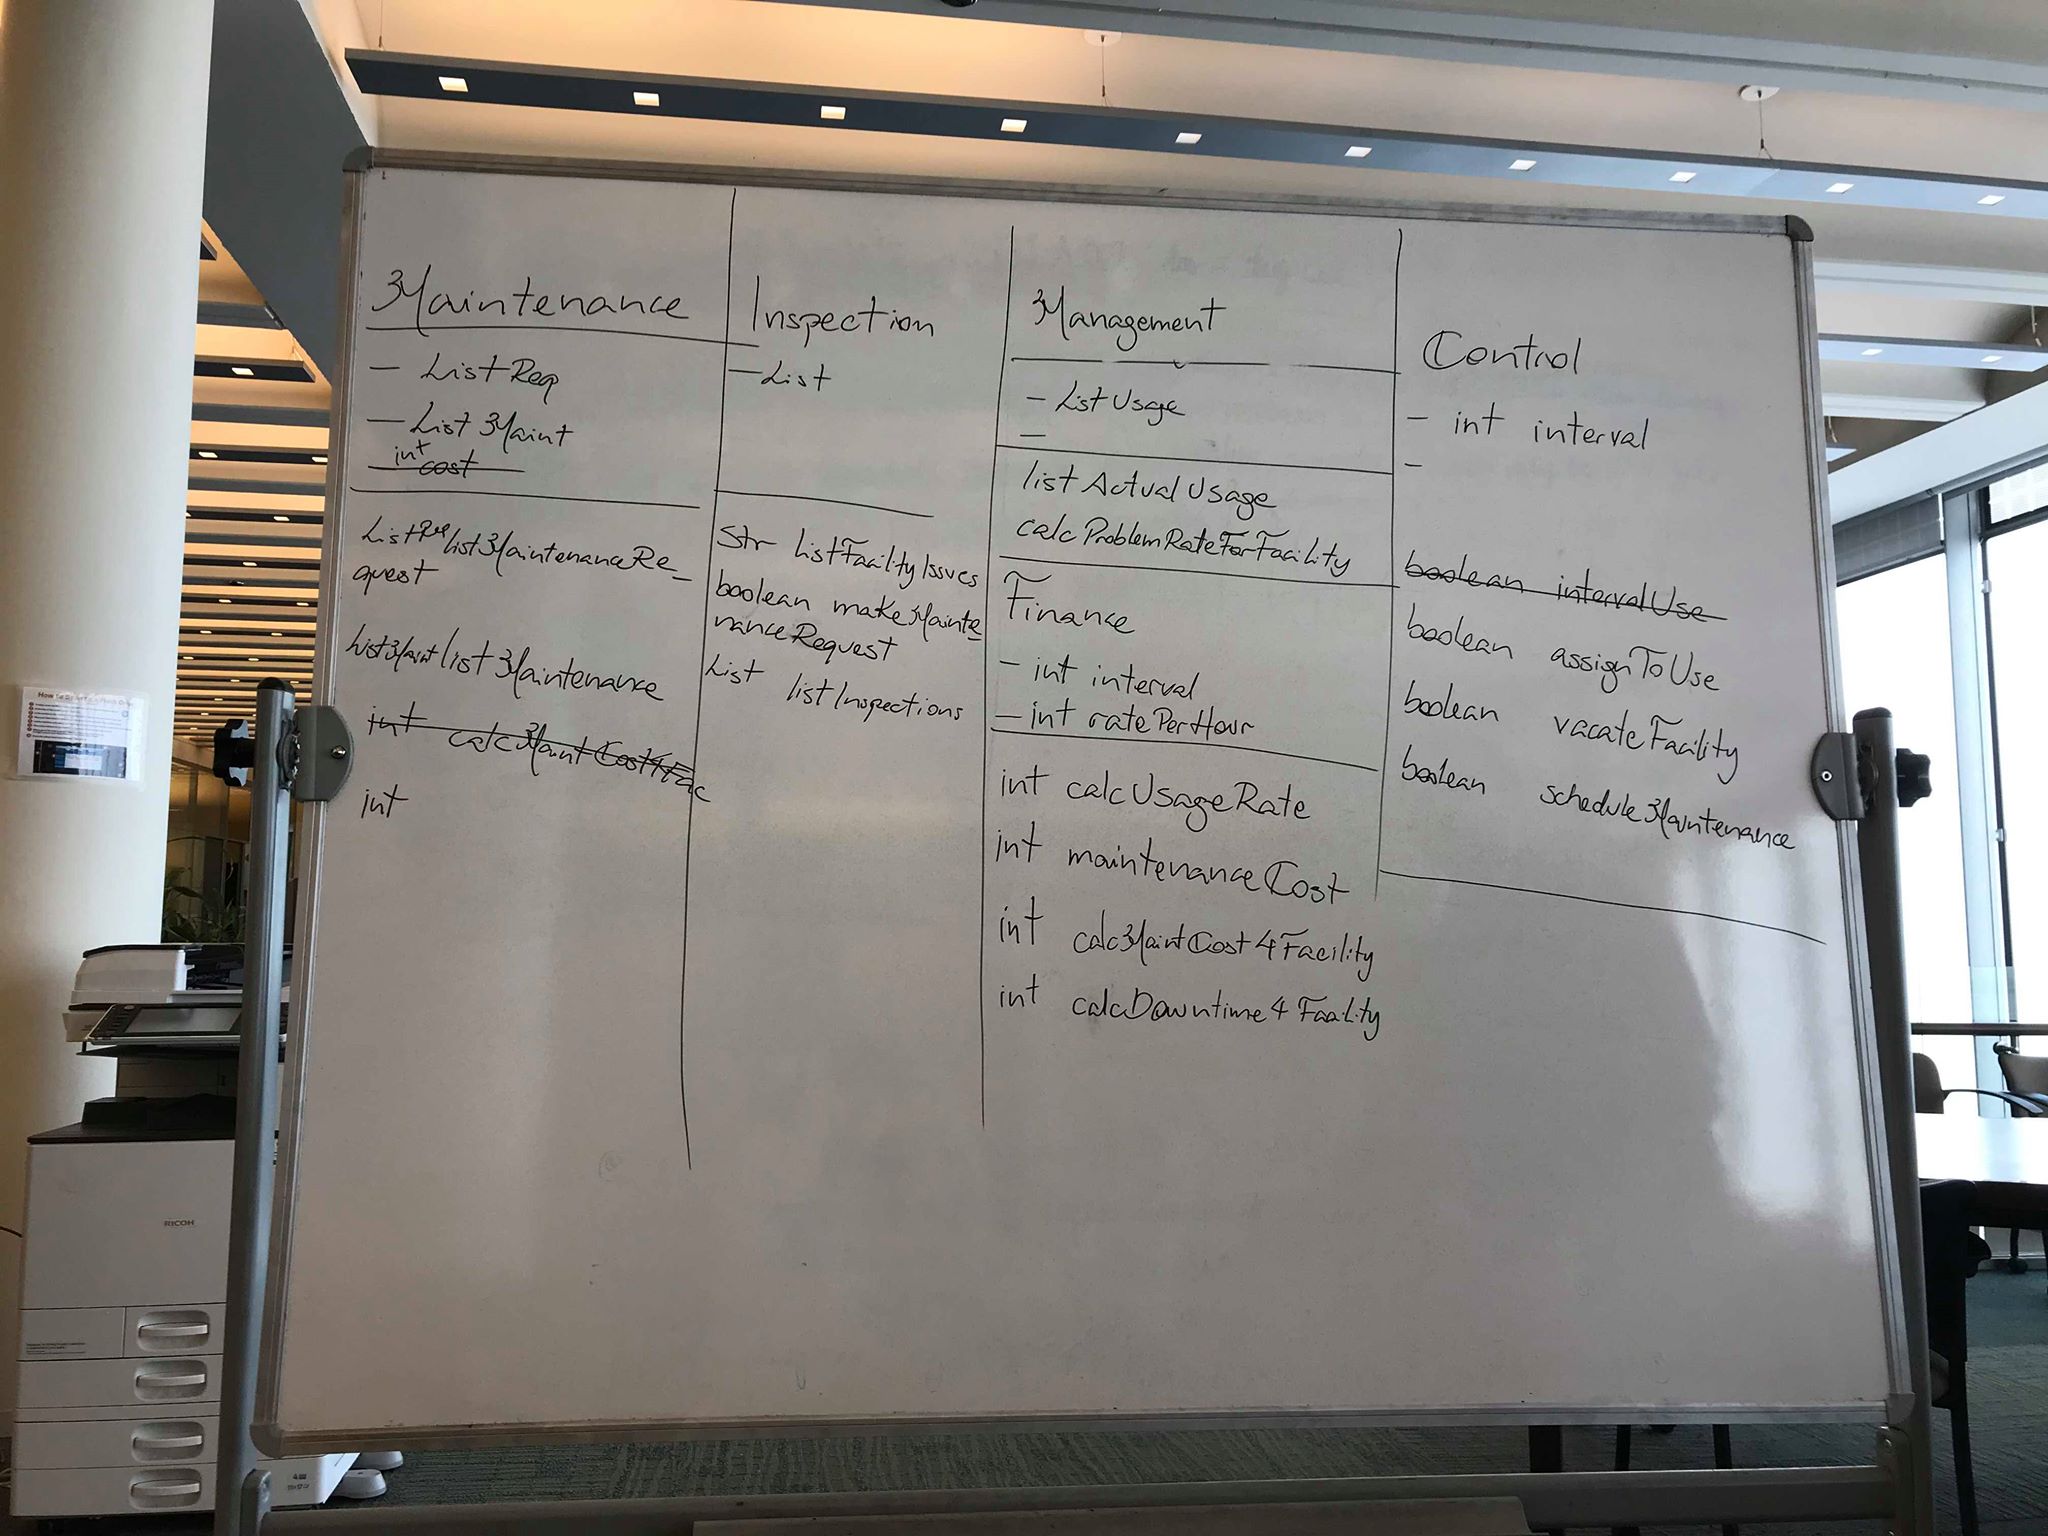 Maintenance
- List Req
- List Maint
int cost
List Re listMaintenanceRe-
quest
ListMaint listMaintenance
int calcMaintCost4Fac
int
Inspection
- List
Str listFacilityIssues
boolean makeMainte-
nanceRequest
List listInspections
Management
- List Usage
-
list Actual Usage
calcProblemRateForFacility
Finance
- int interval
- int ratePerHour
int calcUsageRate
int maintenanceCost
int calcMaintCost4Facility
int calcDowntime4Facility
Control
- int interval
-
boolean intervalUse
boolean assignToUse
boolean vacateFacility
boolean scheduleMaintenance
RICOH